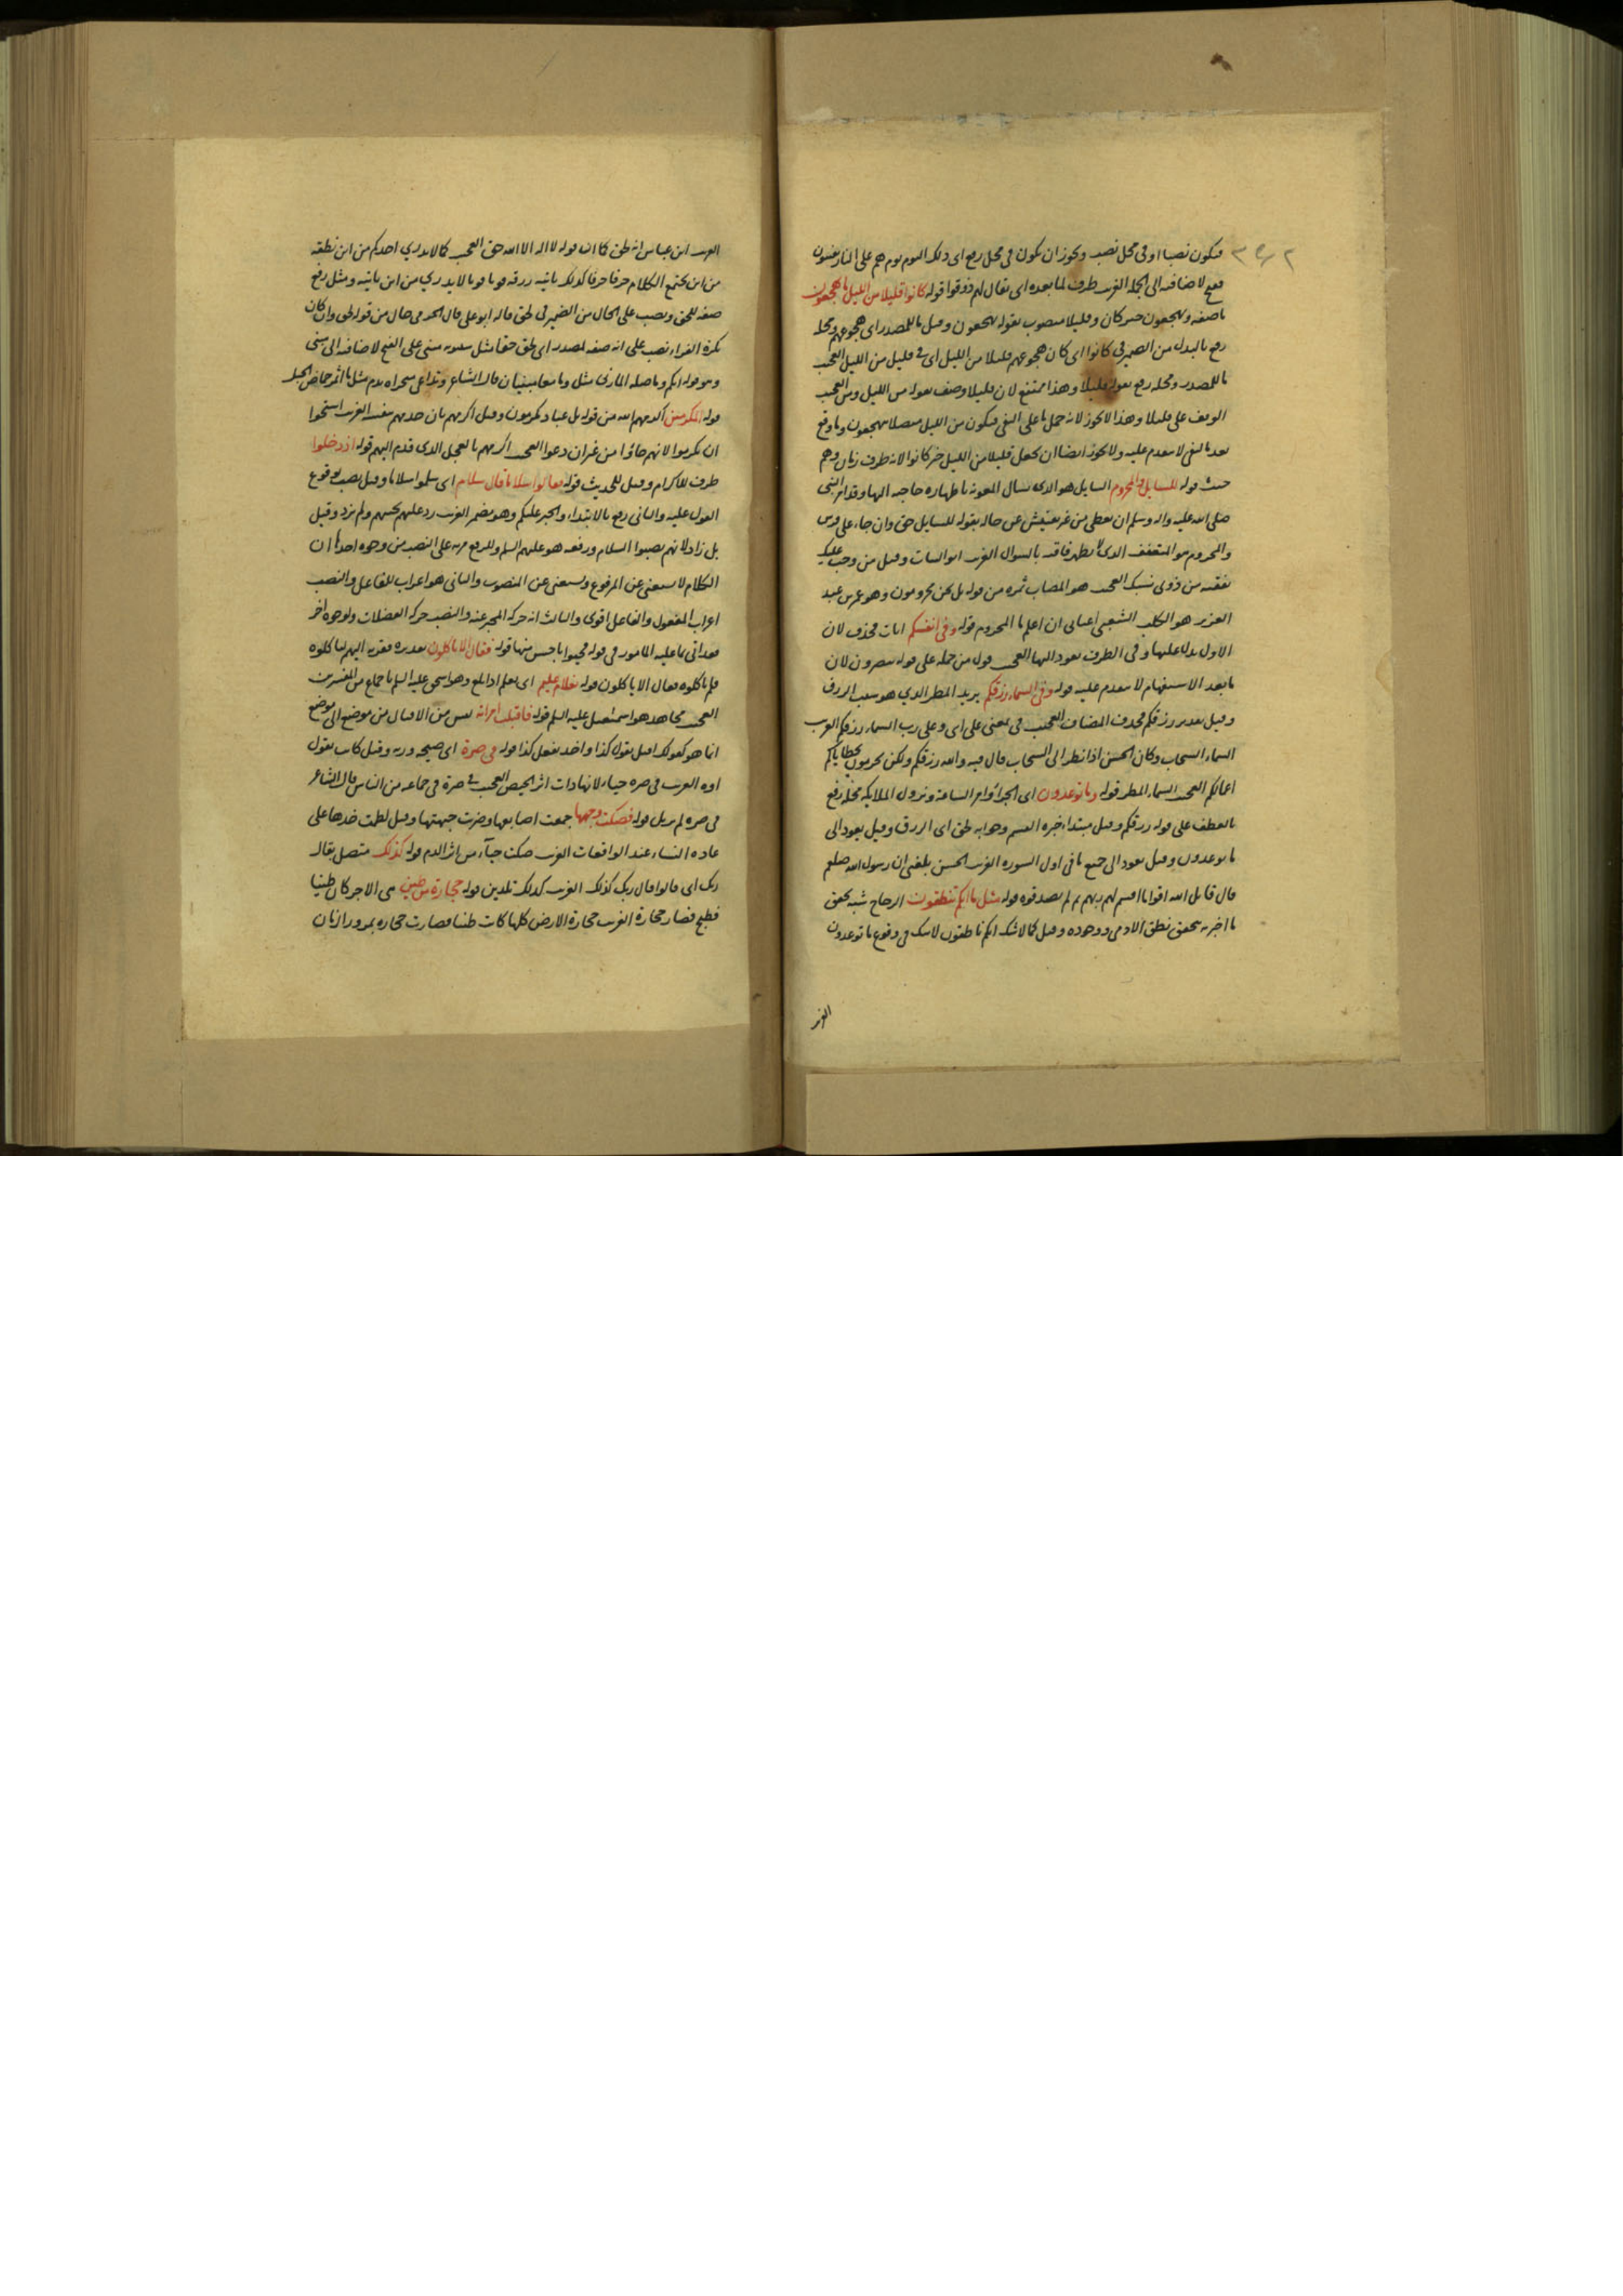 فيكون نصبا او فى محل نصب ويجوز ان يكون فى محل رفع اى ذلك اليوم يوم هم على النار يفتنون
ففتح لاضافته الى الجملة الغريب ظرف لما بعده اى يقال لهم ذوقوا قوله كانوا قليلا من الليل ما يهجعون
ما صفة ويهجعون خبر كان وقليلا منصوب بقوله يهجعون وقيل ما للمصدر اى هجوعهم ومحله
رفع بالبدل من الضمير فى كانوا اى كان هجوعهم قليلا من الليل اى فى قليل من الليل العجب
ما للمصدر ومحله رفع بقوله قليلا وهذا ممتنع لان قليلا وصف بقوله من الليل ومن العجب
الوقف على قليلا وهذا لا يجوز لانه حمل ما على النفى فيكون من الليل متصلا بيهجعون وما وقع
بعد ما النفى لا يتقدم عليه ولا يجوز ايضا ان يجعل قليلا من الليل خبر كانوا لانه ظرف زمان وهم
جثث قوله للسايل والمحروم السايل هو الذى يسال المعونة باظهاره حاجته اليها وقد امر النبى
صلى الله عليه واله وسلم ان يعطى من غير تفتيش عن حاله بقوله للسايل حق وان جاء على فرس
والمحروم هو المتعفف الذى لا يظهر فاقته بالسوال الغريب ابو السات وقيل من وجب عليك
نفقته من ذوى نسبك العجب هو المصاب ثمره من قوله بل نحن محرومون وهو عمر بن عبد
العزيز هو الكلب الشعبى اعيانى ان اعلم ما المحروم قوله وفى انفسكم ايات فحذف لان
الاول يدل عليها وفى الظرف يعود اليها العجب قول من حمله على قوله تبصرون لان
ما بعد الاستفهام لا يتقدم عليه قوله وفى السماء رزقكم يريد المطر الذي هو سبب الرزق
وقيل تقدير رزقكم فحذف المضاف العجب فى بمعنى على اى وعلى رب السماء رزقكم الغريب
السماء السحاب وكان الحسن اذا نظر الى السحاب قال فيه والله رزقكم ولكن تحرمون بخطاياكم
اعمالكم العجب السماء المطر قوله وما توعدون اى الجزاء وامر الساعة ونزول الملايكة محله رفع
بالعطف على قوله رزقكم وقيل مبتداء خبره القسم وجوابه لحق اى الرزق وقيل يعود الى
ما توعدون وقيل يعود الى جميع ما فى اول السورة الغريب الحسن بلغنى ان رسول الله صلعم
قال قاتل الله اقواما اقسم لهم ربهم ثم لم يصدقوه قوله مثل ما انكم تنطقون الزجاج شبه تحقق
ما اخبر به بتحقق نطق الادمى ووجوده وقيل كما لا شك انكم ناطقون لا شك فى وقوع ما توعدون
الغريب
الغريب ابن عباس انه لحق كما ان قوله لا اله الا الله حق العجب كما لا يدري احدكم من اين نطقه
من اين يجتمع الكلام حرفا حرفا كذلك ياتيه رزقه يوما يوما لا يدري من اين ياتيه ومثل رفع
صفة للحق ونصب على الحال من الضمير فى لحق قاله ابو على قال الجرمى حال من قوله لحق وان كان
نكرة الفراء نصب على انه صفة لمصدر اى لحق حقا مثل سيبويه مبنى على الفتح لاضافته الى مبنى
وهو قوله انكم وما صلة المازنى مثل وما معا مبنيان قال الشاعر وتداعى منخراه بدم مثل ما اثمر حماض الجبل
قوله المكرمين اكرمهم الله من قوله بل عباد مكرمون وقيل اكرمهم بان خدمهم بنفسه الغريب استحقوا
ان يكرموا لانهم جاؤا من غير ان دعوا العجب اكرمهم بالعجل الذى قدم اليهم قوله اذ دخلوا
ظرف للاكرام وقيل للحديث قوله فقالوا سلاما قال سلام اى سلموا سلاما وقيل نصب بوقوع
القول عليه والثانى رفع بالابتداء والخبر عليكم وهو مضمر الغريب رد عليهم تحيتهم ولم يزد وقيل
بل زاد لانهم نصبوا السلام ورفعه هو عليهم السلم وللرفع مزية على النصب من وجوه احدها ان
الكلام لا يستغنى عن المرفوع ويستغنى عن المنصوب والثانى هو اعراب للفاعل والنصب
اعراب المفعول والفاعل اقوى والثالث انه حركة المخبر عنه والنصب حركة الفضلات ولوجوه اخر
فقد اتى بما عليه المامور فى قوله فحيوا باحسن منها قوله فقال الا تاكلون تقديره فقربه اليهم لياكلوه
فلم ياكلوه فقال الا تاكلون قوله بغلام عليم اى يعلم اذا بلغ وهو اسحق عليه السلم باجماع من المفسرين
العجب مجاهد هو اسمعيل عليه السلم قوله فاقبلت امراته ليس من الاقبال من موضع الى موضع
انما هو كقولك اقبل يقول كذا واخذ يفعل كذا قوله فى صرة اى صيحة ورنة وقيل كانت تقول
اوه الغريب فى صرة حياء لانها رات اثر الحيض العجب فى صرة فى جماعة من الناس قال الشاعر
فى صرة لم تزيل قوله فصكت وجهها جمعت اصابعها وضربت جبهتها وقيل لطمت خدها على
عادة النساء عند الواقعات الغريب صكت حياء من اثر الدم قوله كذلك متصل بقال
ربك اى قالوا قال ربك كذلك الغريب كذلك تلدين قوله حجارة من طين هى الاجر كان طينا
فطبخ فصار حجارة الغريب حجارة الارض كلها كانت طينا فصارت حجارة بمرور ازمان